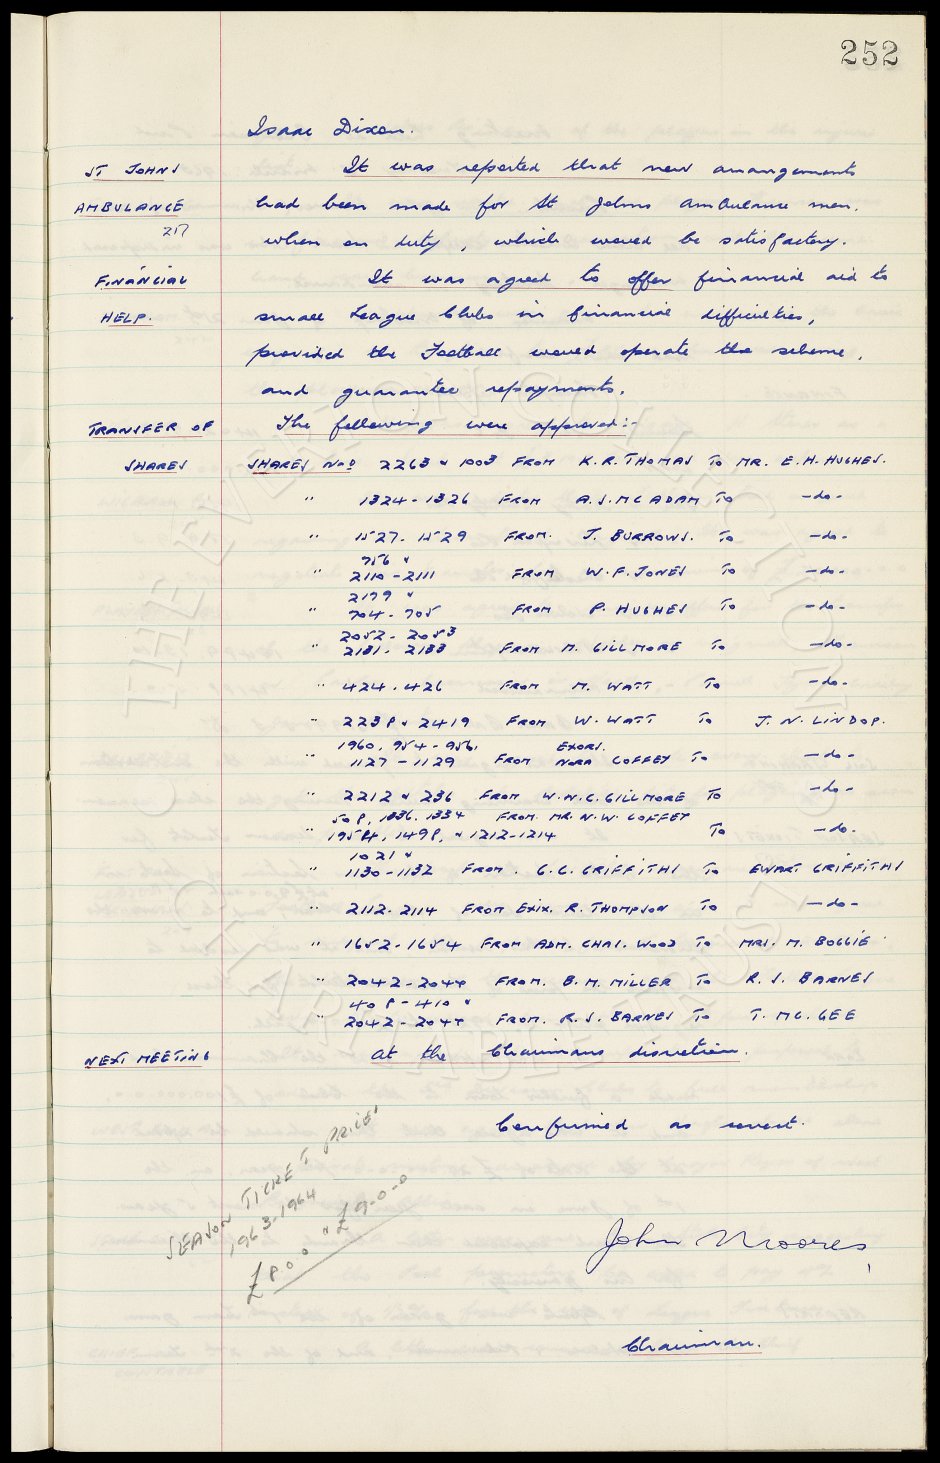 252
Isaac Dixon.
ST JOHNS It was reported that new arrangements
AMBULANCE had been made for St Johns Ambulance men.
when on duty, which would be satisfactory.
FINANCIAL It was agreed to offer financial aid to
HELP. small League Clubs in financial difficulties,
provided the Football would operate the scheme,
and guarantee repayments.
TRANSFER OF The following were approved:-
SHARES SHARES Nos 2263 & 1003 FROM K.R. THOMAS To MR. E.H. HUGHES.
" 1324-1326 FROM A.S. MC ADAM To -do-
" 1527-1529 FROM. J. BURROWS. To -do-
756 &
" 2110-2111 FROM W.F. JONES To -do-
2179 &
" 704-705 FROM P. HUGHES To -do-
2052-2053
" 2131-2133 FROM M. GILLMORE To -do-
" 424-426 FROM M. WATT To -do-
" 2238 & 2419 FROM W. WATT To J.N. LINDOP.
1960, 954-956, EXORS.
" 1127-1129 FROM NORA COFFEY To -do-
" 2212 & 236 FROM W.N.C. GILLMORE To -do-
508, 1336, 1334 FROM MR. N.W. COFFEY
" 1498, & 1212-1214 To -do-
1021 &
" 1130-1132 FROM. G.C. GRIFFITHS To EWART GRIFFITHS
" 2112-2114 FROM EXIX. R. THOMPSON To -do-
" 1652-1654 FROM ADM. CHAS. WOOD To MRS. M. BOGGIE
" 2042-2044 FROM. B.M. MILLER To R.S. BARNES
408-410 &
" 2042-2044 FROM. R.S. BARNES To T. MC. GEE
NEXT MEETING At the Chairmans discretion.
Confirmed as correct.
SEASON TICKET PRICES
1963-1964
£8.0.0 & £9-0-0
John Moores
Chairman.
THE EVERTON COLLECTION
CHARITABLE TRUST